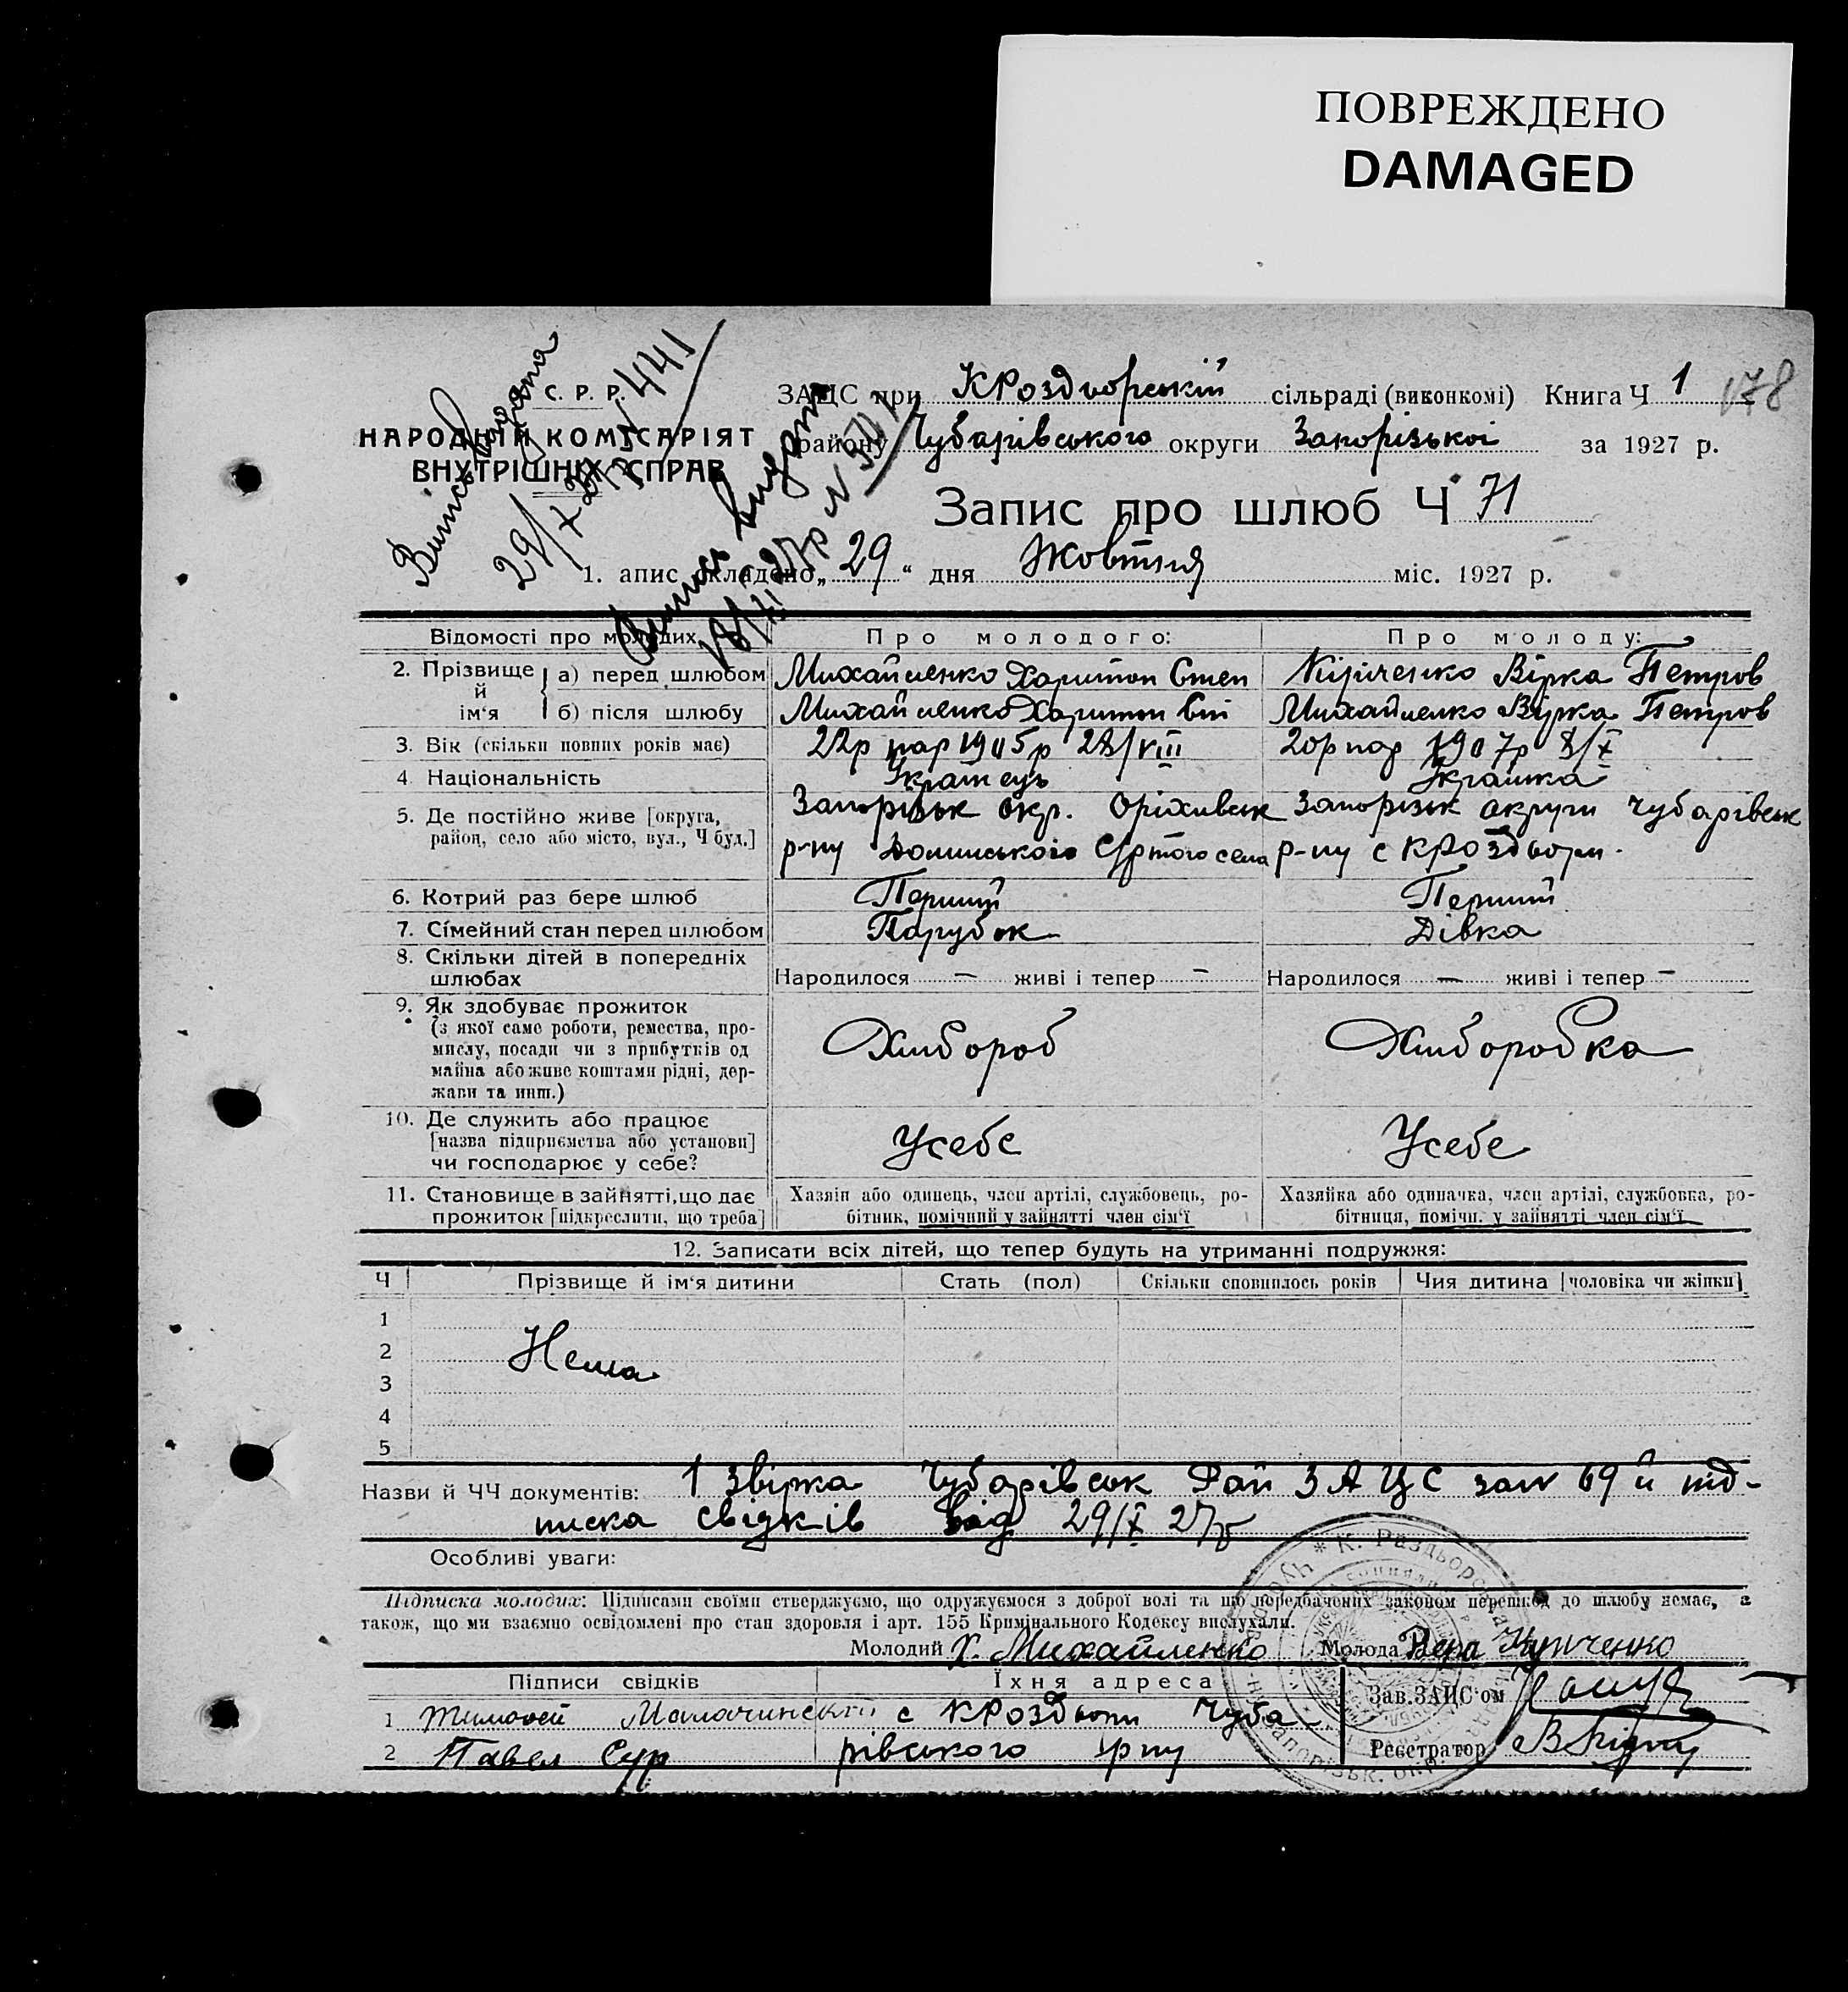 ПОВРЕЖДЕНО
DAMAGED
С. Р. Р.
НАРОДНІЙ КОМІСАРІЯТ
ВНУТРІШНІХ СПРАВ
Випись видана
29/X 27р N 441
Випись видана
ЗАЦС при КРоздворській сільраді (виконкомі) Книга Ч 1 178
району Чубарівського округи Запорізької за 1927 р.
Запис про шлюб Ч 71
1. апис складено „29“ дня Жовтня міс. 1927 р.
Відомості про молодих Про молодого: Про молоду:
2. Прізвище й ім‘я
а) перед шлюбом Михайленко Харитон Степ Кіріченко Вірка Петров
б) після шлюбу Михайленко Харитон Михайленко Вірка Петров
3. Вік (скільки повних років має) 22р нар 1905р 28/VIII 20р нар 1907р 8/X
4 Національність Українець Українка
5. Де постійно живе [округа, район, село або місто, вул., Ч буд.]
Запорізьк окр. Оріхивськ Запорізьк округи Чубарівськ
р-ну села р-ну с КРоздори.
6. Котрий раз бере шлюб Перший Перший
7. Сімейний стан перед шлюбом Парубок Дівка
8. Скільки дітей в попередніх шлюбах Народилося — живі і тепер — Народилося — живі і тепер —
9. Як здобуває прожиток
(з якої саме роботи, ремества, про-
мислу, посади чи з прибутків од
майна або живе коштами рідні, дер-
жави та инш.)
Хлибороб Хлиборобка
10. Де служить або працює
[назва підприємства або установи]
чи господарює у себе?
Усебе Усебе
11. Становище в зайнятті, що дає
прожиток [підкреслити, що треба]
Хазяїн або одинець, член артілі, службовець, ро-
бітник, помічний у зайнятті член сім‘ї
Хазяйка або одиначка, член артілі, службовка, ро-
бітниця, помічн. у зайнятті член сім‘ї
12. Записати всіх дітей, що тепер будуть на утриманні подружжя:
Ч Прізвище й ім‘я дитини Стать (пол) Скільки сповнилось років Чия дитина [чоловіка чи жінки]
1
2 Нема
3
4
5
Назви й ЧЧ документів: 1 Звірка Чубарівськ Рай ЗАЦС за N 69 й під-
писка свідків від 29/X 27р
Особливі уваги:
Підписка молодих: Підписами своїми стверджуємо, що одружуємося з доброї волі та що передбачених законом перешкод до шлюбу немає, а
також, що ми взаємно освідомлені про стан здоровля і арт. 155 Кримінального Кодексу вислухали.
Молодий Х. Михайленко Молода Вера Кириченко
Підписи свідків Їхня адреса Зав. ЗАЦС‘ом
1 Тимофей с КРоздори Чуба-
2 Павел Сур рівського рну Реєстратор